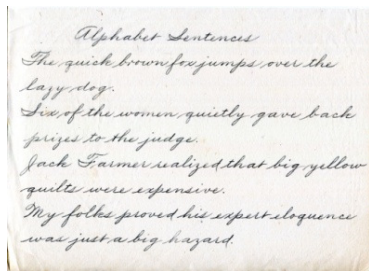 Alphabet Sentences
The quick brown fox jumps over the
lazy dog.
Six of the women quietly gave back
prizes to the judge.
Jack Farmer realized that big yellow
quilts were expensive.
My folks proved his expert eloquence
was just a big hazard.